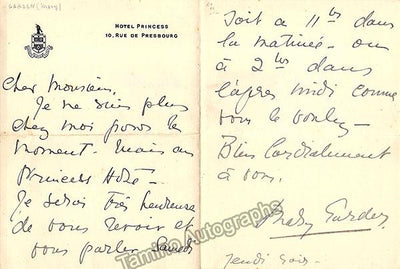 GARDEN (Mary)
HOTEL PRINCESS
10, RUE DE PRESBOURG
Cher Monsieur,
Je ne suis plus
chez moi pour le
moment. Mais au
Princess Hotel –
Je serais très heureuse
de vous revoir et
vous parler Samedi
Soit à 11 hrs dans
la matinée – ou
à 2 hrs dans
l'après midi comme
vous le voulez –
Bien Cordialement
à vous.
Mary Garden
Jeudi soir –
Tamino Autographs